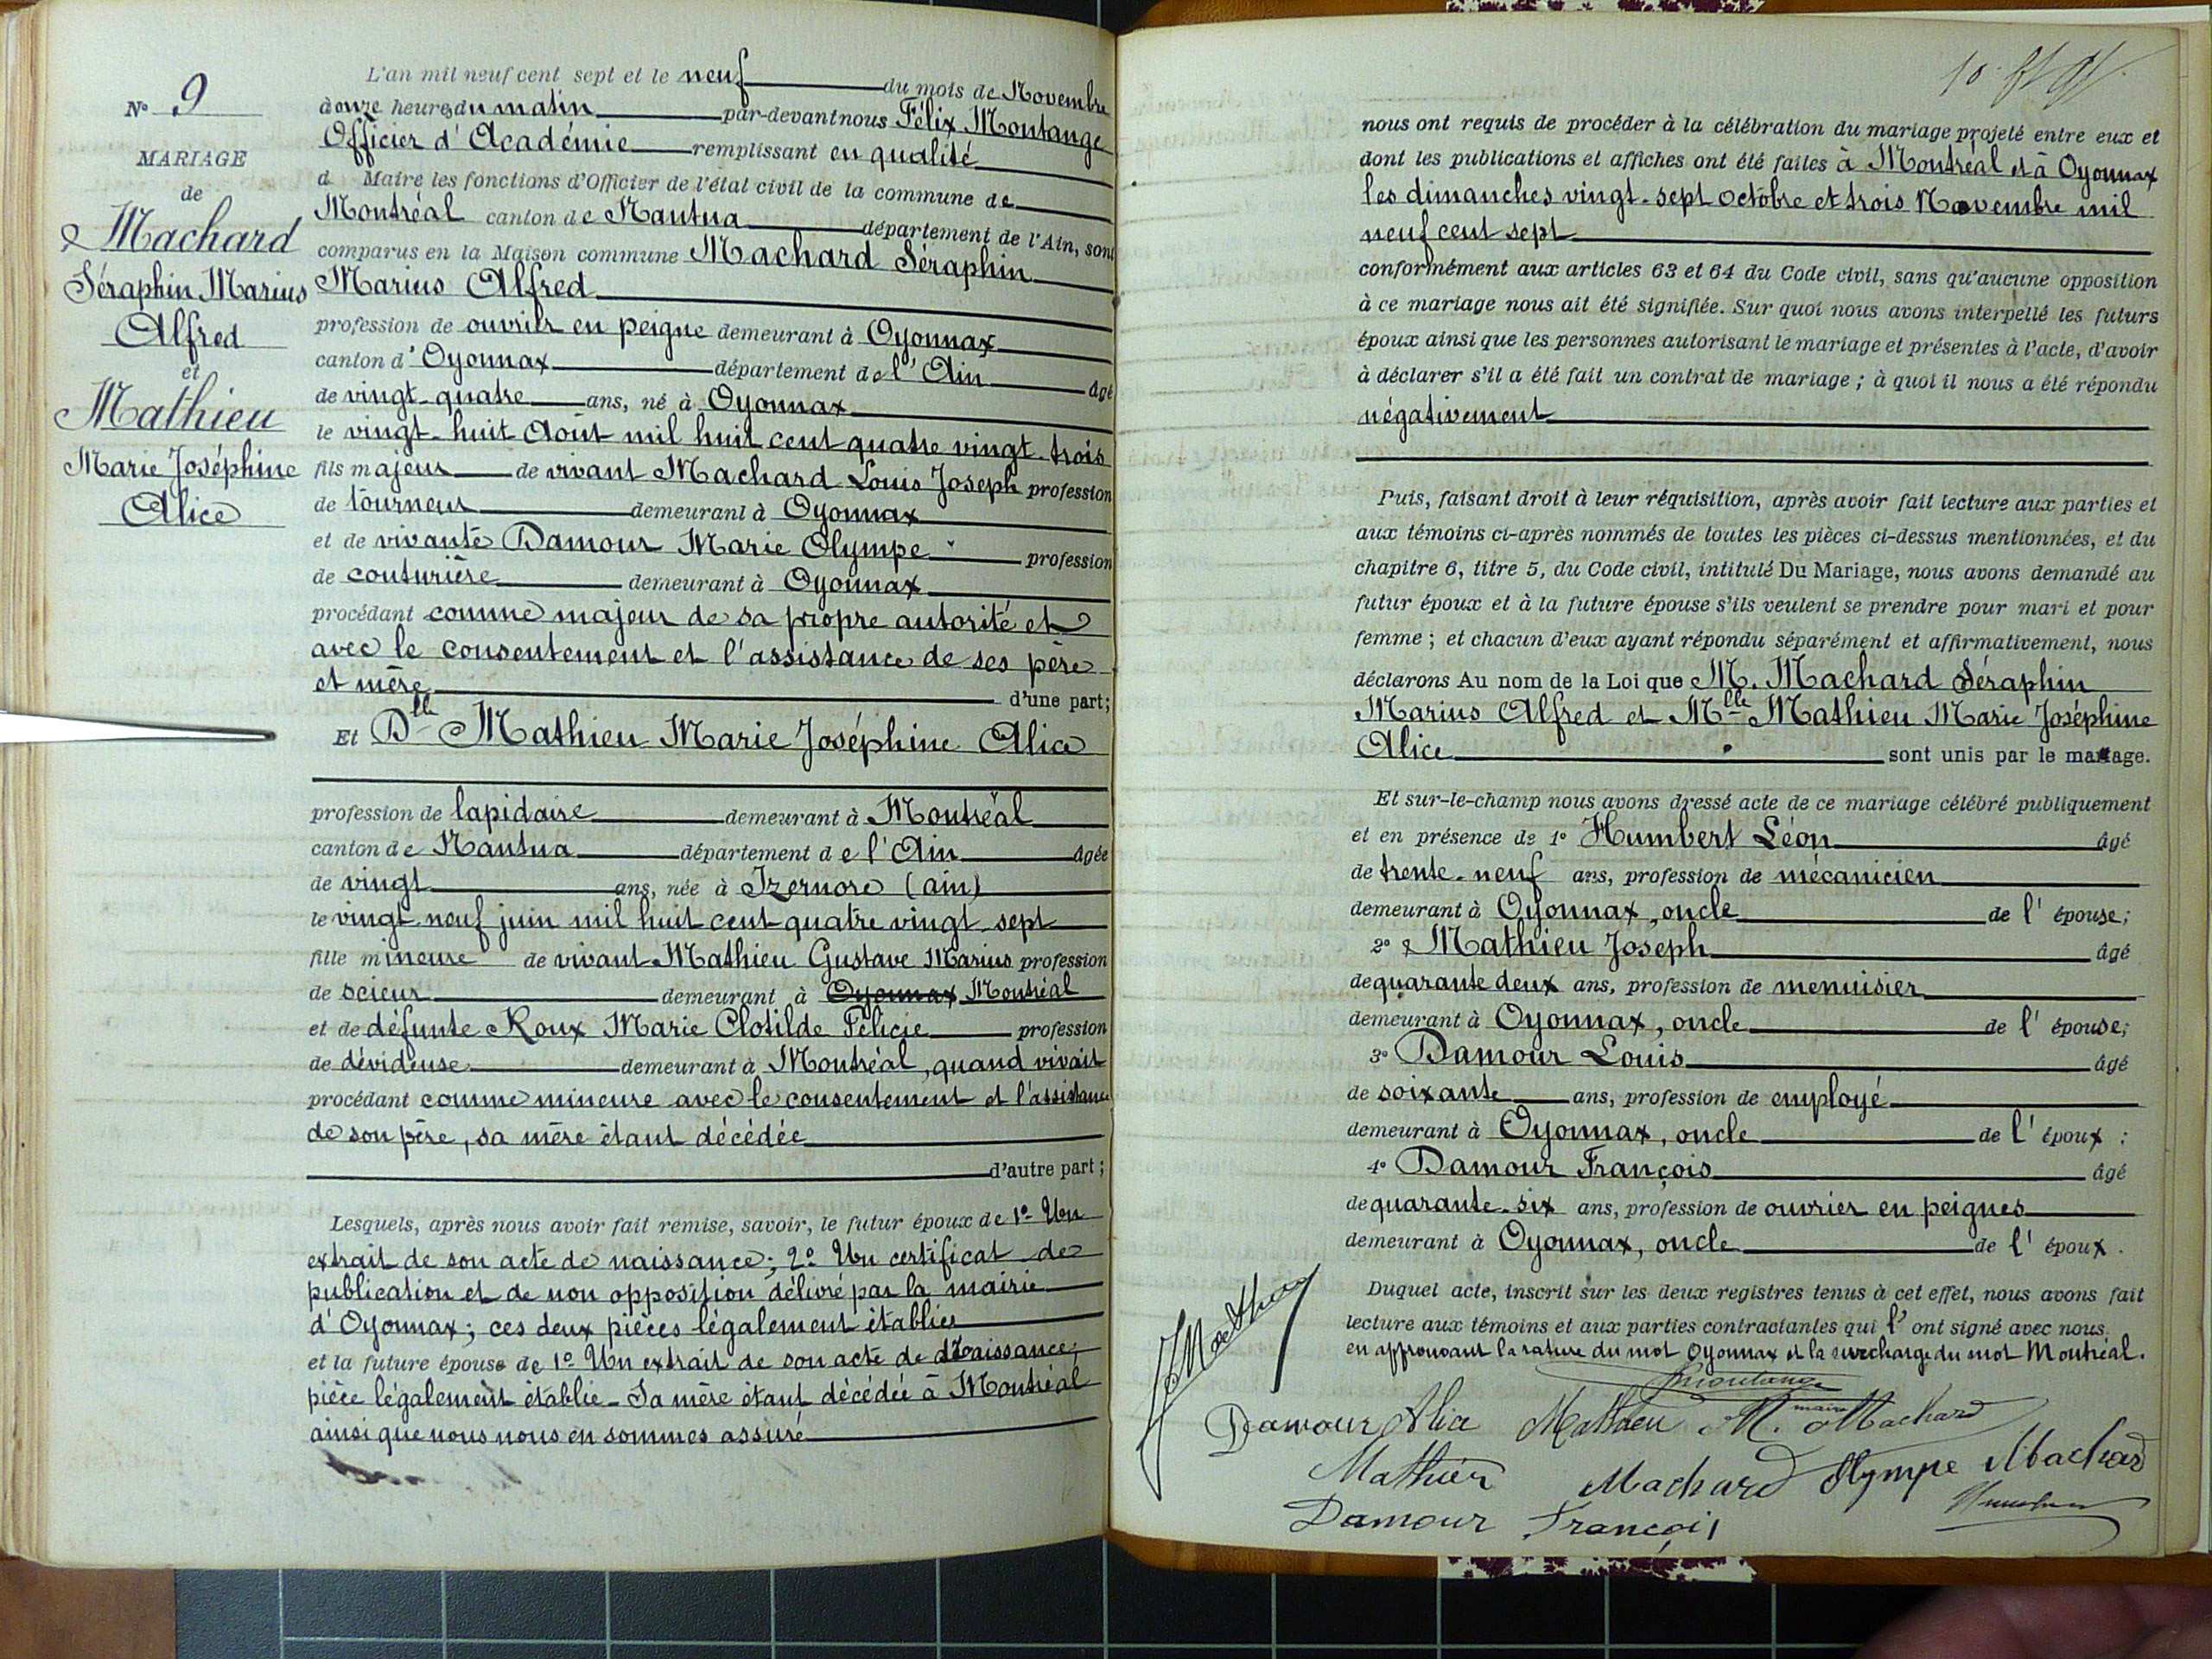 N° 9
MARIAGE
de
Machard
Séraphin Marius
Alfred
et
Mathieu
Marie Joséphine
Alice
L'an mil neuf cent sept et le neuf du mois de Novembre
à onze heures du matin par-devant nous Félix Montange
Officier d'Académie remplissant en qualité
d Maire les fonctions d'Officier de l'état civil de la commune de
Montréal canton de Nantua département de l'Ain, sont
comparus en la Maison commune Machard Séraphin
Marius Alfred
profession de ouvrier en peigne demeurant à Oyonnax
canton d'Oyonnax département de l'Ain âgé
de vingt-quatre ans, né à Oyonnax
le vingt-huit Août mil huit cent quatre vingt-trois
fils majeur de vivant Machard Louis Joseph profession
de tourneur demeurant à Oyonnax
et de vivante Damour Marie Olympe profession
de couturière demeurant à Oyonnax
procédant comme majeur de sa propre autorité et
avec le consentement et l'assistance de ses père
et mère d'une part;
Et Dlle Mathieu Marie Joséphine Alice
profession de lapidaire demeurant à Montréal
canton de Nantua département de l'Ain âgée
de vingt ans, née à Izernore (ain)
le vingt neuf juin mil huit cent quatre vingt-sept
fille mineure de vivant Mathieu Gustave Marius profession
de scieur demeurant à Oyonnax Montréal
et de défunte Roux Marie Clotilde Félicie profession
de dévideuse demeurant à Montréal, quand vivait
procédant comme mineure avec le consentement et l'assistance
de son père, sa mère étant décédée
d'autre part;
Lesquels, après nous avoir fait remise, savoir, le futur époux de 1° Un
extrait de son acte de naissance; 2° Un certificat de
publication et de non opposition délivré par la mairie
d'Oyonnax; ces deux pièces légalement établies
et la future épouse de 1° Un extrait de son acte de Naissance;
pièce légalement établie - Sa mère étant décédée à Montréal
ainsi que nous nous en sommes assuré
nous ont requis de procéder à la célébration du mariage projeté entre eux et
dont les publications et affiches ont été faites à Montréal et à Oyonnax
les dimanches vingt-sept octobre et trois Novembre mil
neuf cent sept
conformément aux articles 63 et 64 du Code civil, sans qu'aucune opposition
à ce mariage nous ait été signifiée. Sur quoi nous avons interpellé les futurs
époux ainsi que les personnes autorisant le mariage et présentes à l'acte, d'avoir
à déclarer s'il a été fait un contrat de mariage; à quoi il nous a été répondu
négativement
Puis, faisant droit à leur réquisition, après avoir fait lecture aux parties et
aux témoins ci-après nommés de toutes les pièces ci-dessus mentionnées, et du
chapitre 6, titre 5, du Code civil, intitulé Du Mariage, nous avons demandé au
futur époux et à la future épouse s'ils veulent se prendre pour mari et pour
femme; et chacun d'eux ayant répondu séparément et affirmativement, nous
déclarons Au nom de la Loi que M. Machard Séraphin
Marius Alfred et Mlle Mathieu Marie Joséphine
Alice sont unis par le mariage.
Et sur-le-champ nous avons dressé acte de ce mariage célébré publiquement
et en présence de 1° Humbert Léon âgé
de trente-neuf ans, profession de mécanicien
demeurant à Oyonnax, oncle de l'épouse;
2° Mathieu Joseph âgé
de quarante deux ans, profession de menuisier
demeurant à Oyonnax, oncle de l'épouse;
3° Damour Louis âgé
de soixante ans, profession de employé
demeurant à Oyonnax, oncle de l'époux:
4° Damour François âgé
de quarante-six ans, profession de ouvrier en peignes
demeurant à Oyonnax, oncle de l'époux.
Duquel acte, inscrit sur les deux registres tenus à cet effet, nous avons fait
lecture aux témoins et aux parties contractantes qui l'ont signé avec nous.
en approuvant la rature du mot Oyonnax et la surcharge du mot Montréal.
Montange
maire
Damour Alice Mathieu M. Machard
Mathieu Machard Olympe Machard
Damour François